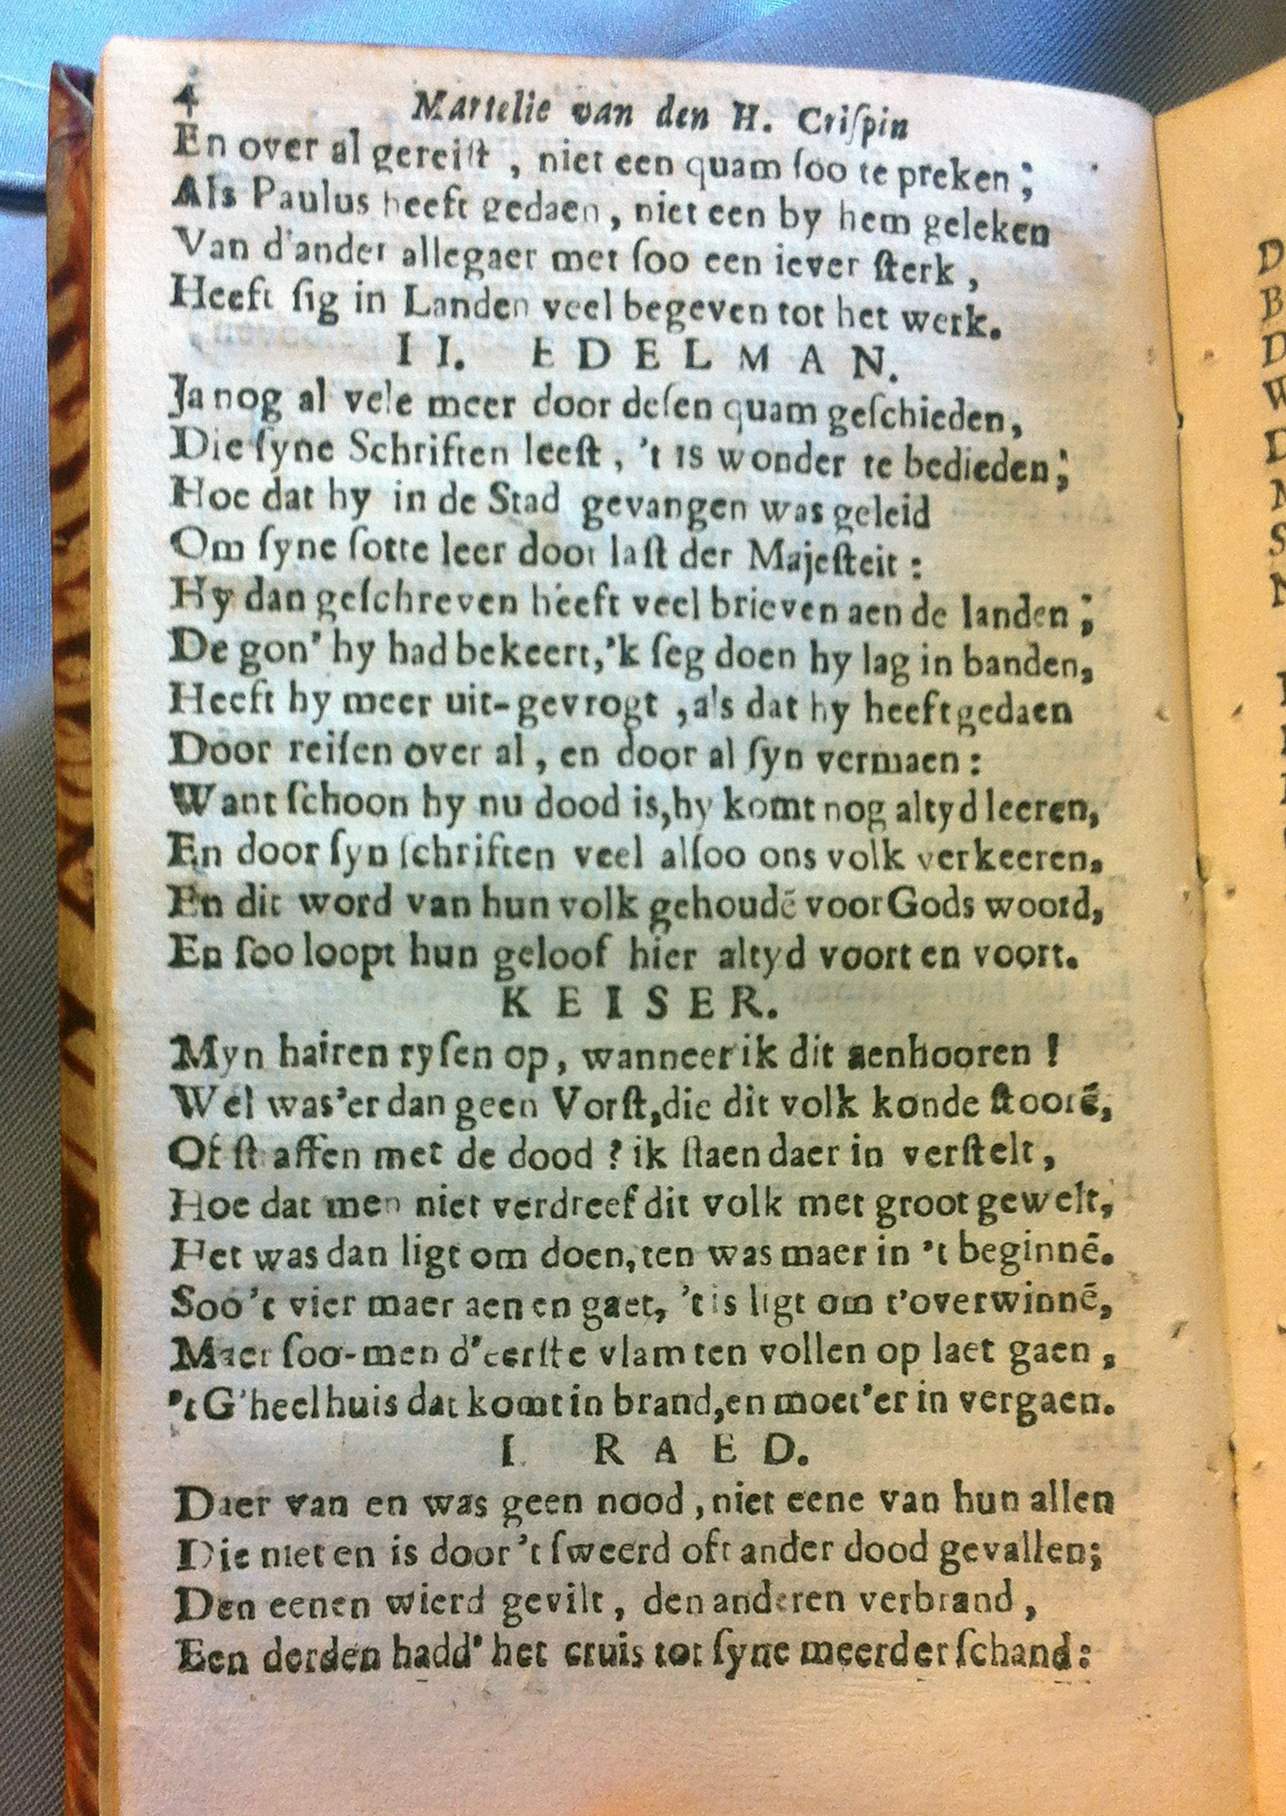 4 Martelie van den H. Criſpin
En over al gereiſt , niet een quam ſoo te preken ;
Als Paulus heeft gedaen , niet een by hem geleken
Van d'ander allegaer met ſoo een iever ſterk ,
Heeft ſig in Landen veel begeven tot het werk.
I I. E D E L M A N.
Ja nog al vele meer door deſen quam geſchieden,
Die ſyne Schriften leeſt , 't is wonder te bedieden ;
Hoe dat hy in de Stad gevangen was geleid
Om ſyne ſotte leer door laſt der Majeſteit :
Hy dan geſchreven heeft veel brieven aen de landen ;
De gon' hy had bekeert,'k ſeg doen hy lag in banden,
Heeft hy meer uit-gevrogt ,als dat hy heeft gedaen
Door reiſen over al , en door al ſyn vermaen :
Want ſchoon hy nu dood is,hy komt nog altyd leeren,
En door ſyn ſchriften veel alſoo ons volk verkeeren,
En dit word van hun volk gehoudē voor Gods woord,
En ſoo loopt hun geloof hier altyd voort en voort.
K E I S E R.
Myn hairen ryſen op, wanneer ik dit aenhooren !
Wel was'er dan geen Vorſt,die dit volk konde ſtoorē,
Of ſtraffen met de dood ? ik ſtaen daer in verſtelt ,
Hoe dat men niet verdreef dit volk met groot gewelt,
Het was dan ligt om doen,ten was maer in 't beginnē.
Soo 't vier maer aen en gaet, 't is ligt om t'overwinnē,
Maer ſoo-men d'eerſte vlam ten vollen op laet gaen ,
't G'heel huis dat komt in brand,en moet'er in vergaen.
I. R A E D.
Daer van en was geen nood ,niet eene van hun allen
Die niet en is door 't ſweerd oft ander dood gevallen;
Den eenen wierd gevilt , den anderen verbrand ,
Een derden hadd' het cruis tot ſyne meerder ſchand :
D
B
D
W
D
M
S
N